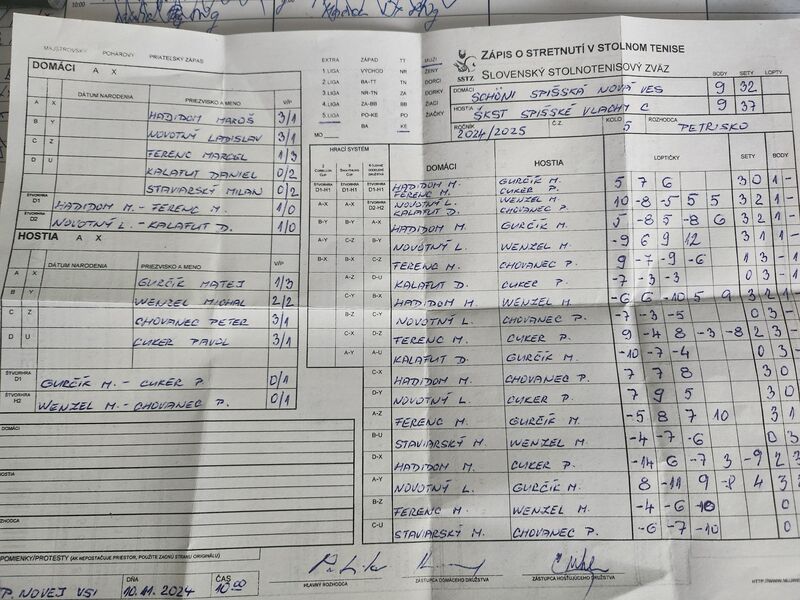 MAJSTROVSKÝ POHÁROVÝ PRIATEĽSKÝ ZÁPAS
DOMÁCI A X
DÁTUM NARODENIA PRIEZVISKO A MENO V/P
A X HADIDOM MAROŠ 3/1
B Y NOVOTNÝ LADISLAV 3/1
C Z FERENC MARCEL 1/3
D U KALAFUT DANIEL 0/2
STAVIARSKÝ MILAN 0/2
ŠTVORHRA D1 HADIDOM M. - FERENC M. 1/0
ŠTVORHRA D2 NOVOTNÝ L. - KALAFUT D. 1/0
HOSTIA A X
DÁTUM NARODENIA PRIEZVISKO A MENO V/P
A X GURČÍK MATEJ 1/3
B Y WENZEL MICHAL 2/2
C Z CHOVANEC PETER 3/1
D U CUKER PAVOL 3/1
ŠTVORHRA D1 GURČÍK M. - CUKER P. 0/1
ŠTVORHRA H2 WENZEL M. - CHOVANEC P. 0/1
DOMÁCI
HOSTIA
ROZHODCA
POMIENKY/PROTESTY (AK NEPOSTAČUJE PRIESTOR, POUŽITE ZADNÚ STRANU ORIGINÁLU)
P. NOVEJ VSI DŇA 10.11.2024 ČAS 10.00
EXTRA ZÁPAD TT MUŽI
1.LIGA VÝCHOD NR ŽENY
2.LIGA BA-TT TN DORCI
3.LIGA NR-TN ZA DORKY
4.LIGA ZA-BB BB ŽIACI
5.LIGA PO-KE PO ŽIAČKY
MO BA KE
SSTZ
ZÁPIS O STRETNUTÍ V STOLNOM TENISE
SLOVENSKÝ STOLNOTENISOVÝ ZVÄZ
BODY SETY LOPTY
DOMÁCI SCHÖNI SPIŠSKÁ NOVÁ VES 9 32
HOSTIA ŠKST SPIŠSKÉ VLACHY C 9 37
ROČNÍK 2024/2025 Č.Z. KOLO 5 ROZHODCA PETRISKO
HRACÍ SYSTÉM DOMÁCI HOSTIA LOPTIČKY SETY BODY
HADIDOM M. FERENC M. GURČÍK M. CUKER P. 5 7 6 3 0 1 -
NOVOTNÝ L. KALAFUT D. WENZEL M. CHOVANEC P. 10 -8 -5 5 5 3 2 1 -
HADIDOM M. GURČÍK M. 5 -8 5 -8 6 3 2 1 -
NOVOTNÝ L. WENZEL M. -9 6 9 12 3 1 1 -
FERENC M. CHOVANEC P. 9 -7 -9 -6 1 3 -
KALAFUT D. CUKER P. -7 -3 -3 0 3 -
HADIDOM M. WENZEL M. -6 6 -10 5 9 3 2 1 -
NOVOTNÝ L. CHOVANEC P. -7 -3 -5 0 3 -
FERENC M. CUKER P. 9 -4 8 -3 -8 2 3 -
KALAFUT D. GURČÍK M. -10 -7 -4 0 3 -
C-X HADIDOM M. CHOVANEC P. 7 7 8 3 0
D-Y NOVOTNÝ L. CUKER P. 7 9 5 3 0
A-Z FERENC M. GURČÍK M. -5 8 7 10 3 1
B-U STAVIARSKÝ M. WENZEL M. -4 -7 -6 0 3
D-X HADIDOM M. CUKER P. -14 6 -7 3 -9 2 3
A-Y NOVOTNÝ L. GURČÍK M. 8 -11 9 -8 4 3
B-Z FERENC M. WENZEL M. -4 -6 0
C-U STAVIARSKÝ M. CHOVANEC P. -6 -7 -10 0
HLAVNÝ ROZHODCA ZÁSTUPCA DOMÁCEHO DRUŽSTVA ZÁSTUPCA HOSŤUJÚCEHO DRUŽSTVA